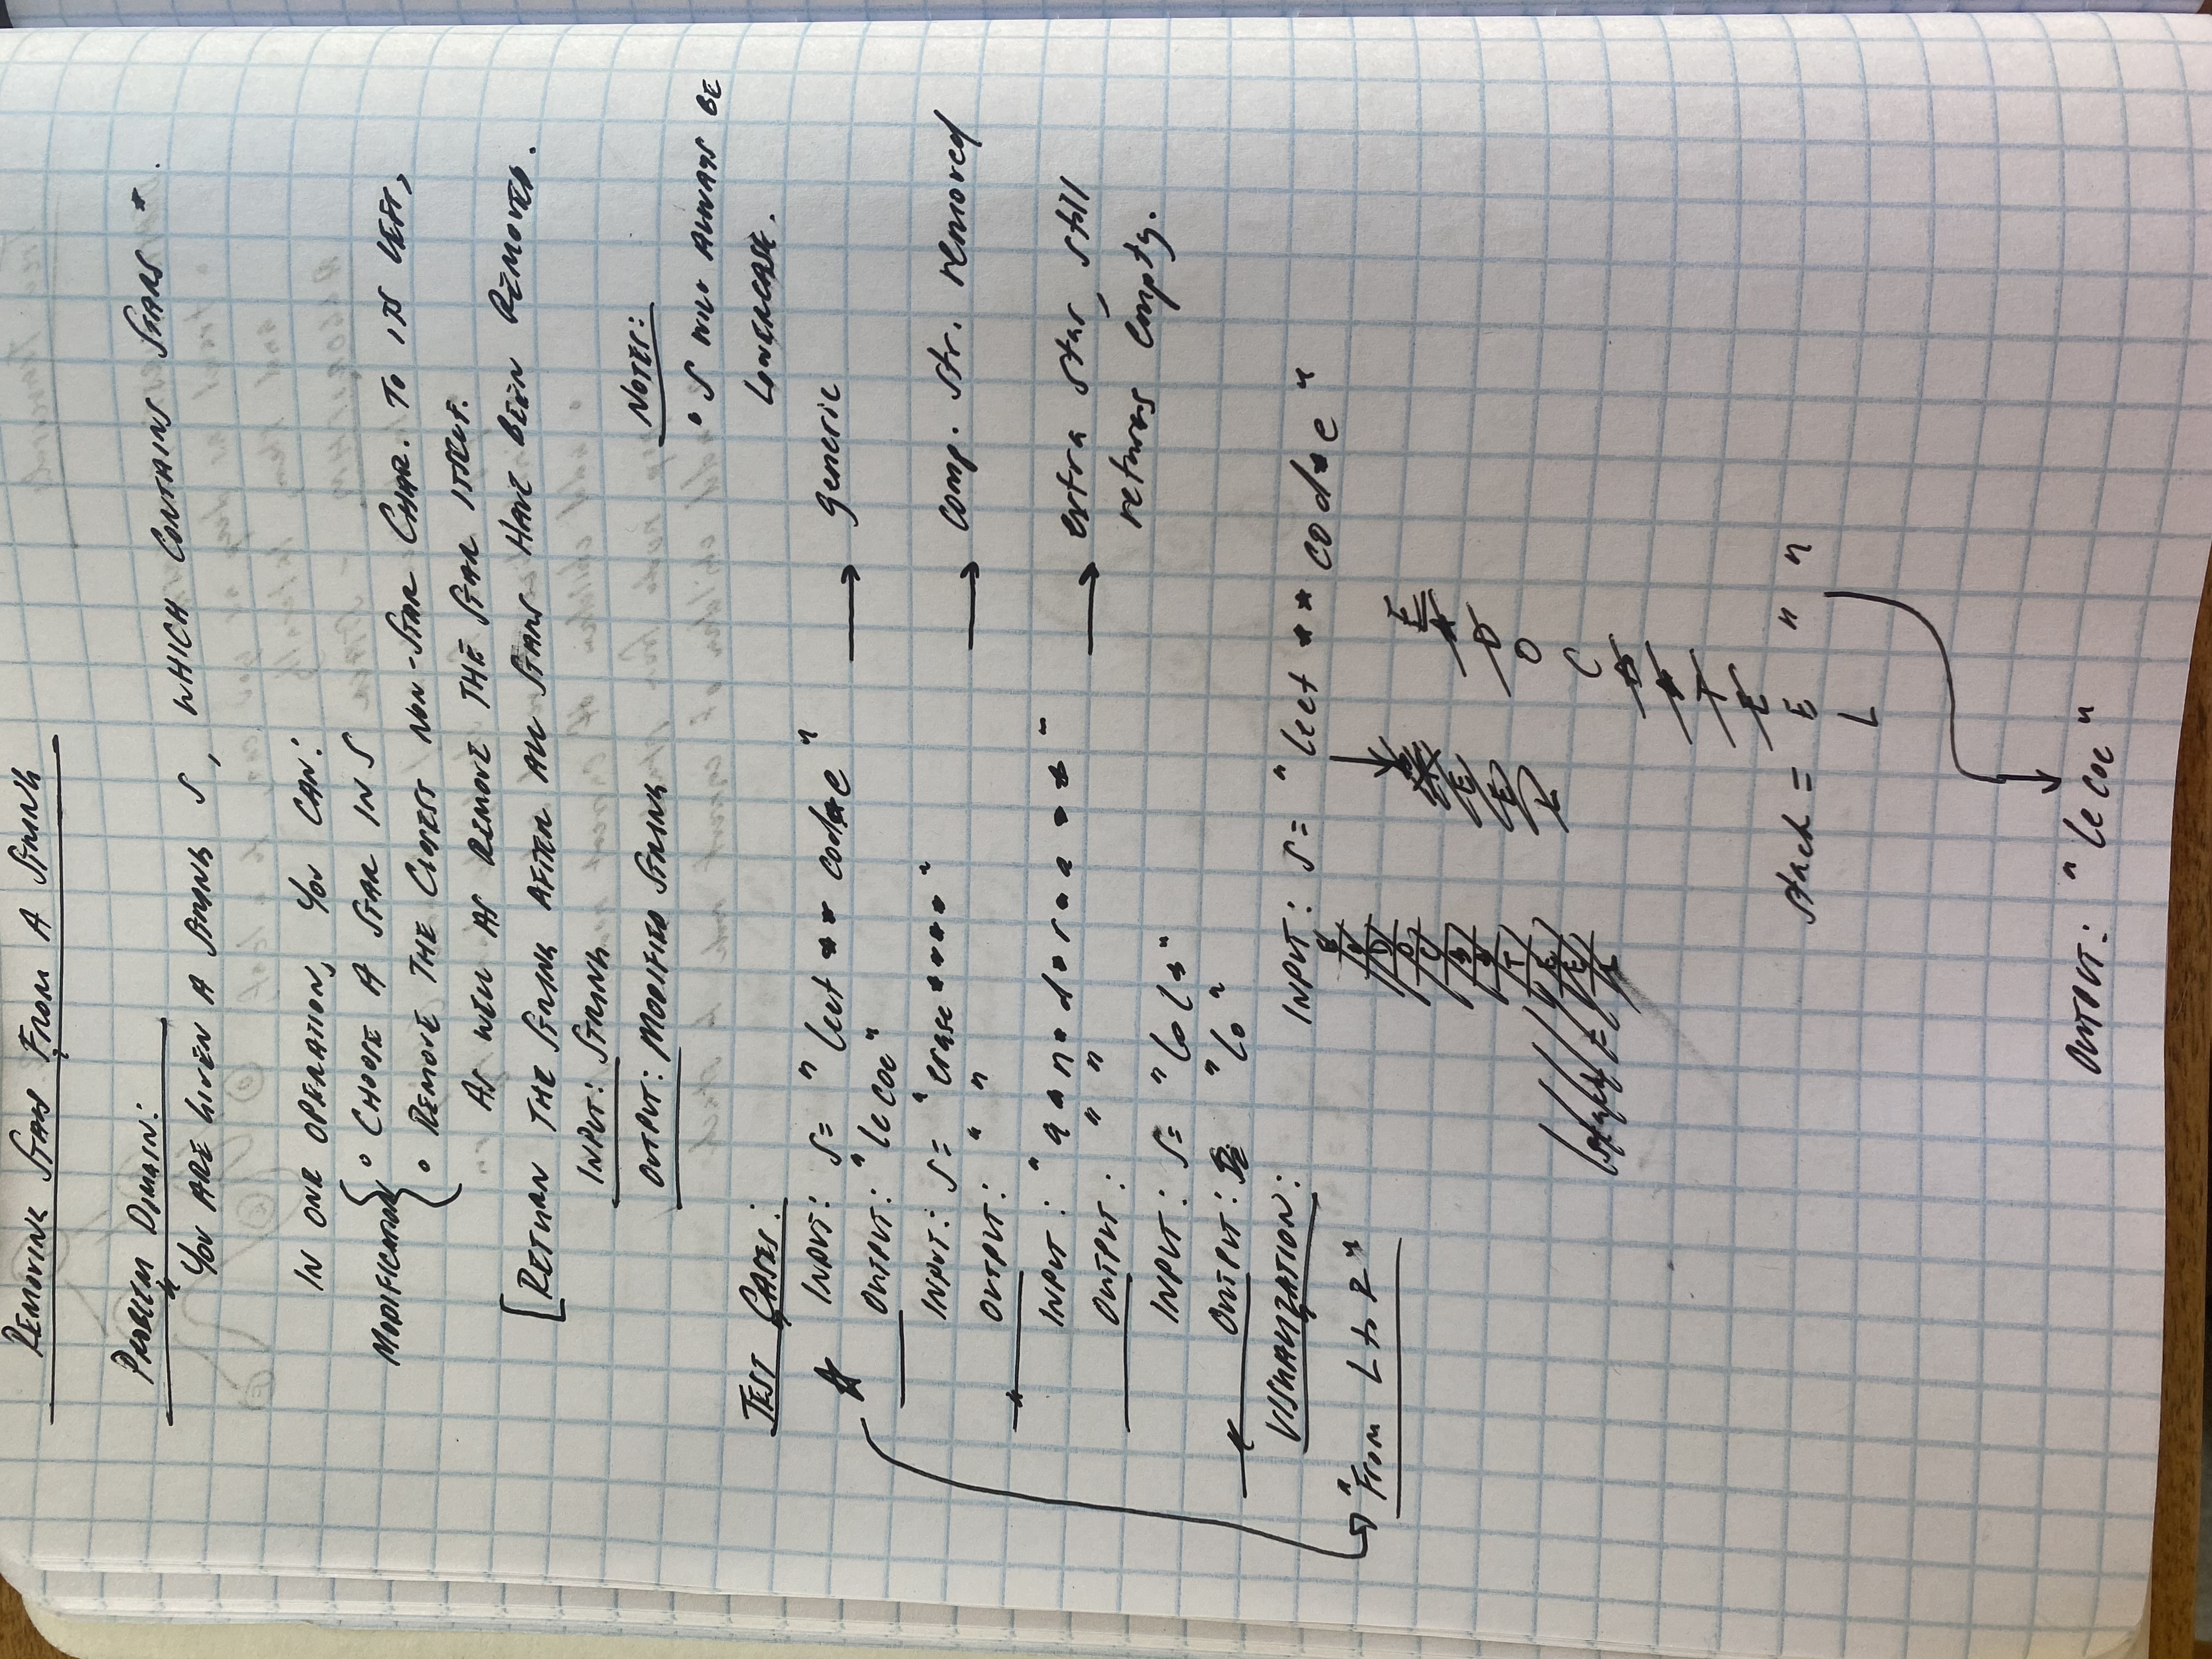 REMOVING STARS FROM A STRING
PROBLEM DOMAIN:
"YOU ARE GIVEN A STRING S, WHICH CONTAINS STARS *.
IN ONE OPERATION, YOU CAN:
MODIFICATION { • CHOOSE A STAR IN S
• REMOVE THE CLOSEST NON-STAR CHAR. TO ITS LEFT,
AS WELL AS REMOVE THE STAR ITSELF.
[RETURN THE STRING AFTER ALL STARS HAVE BEEN REMOVED.
INPUT: STRING
OUTPUT: MODIFIED STRING
NOTES:
• S WILL ALWAYS BE
LOWERCASE.
TEST CASES:
INPUT: S= "leet ** cod*e" → generic
OUTPUT: "lecoe"
INPUT: S= "erase****" → comp. str. removed
OUTPUT: " "
INPUT: "a*n*d*r*a**" → extra star, still
returns empty.
OUTPUT: " "
INPUT: S= "lol*"
OUTPUT: "lo"
VISUALIZATION:
INPUT: S= "leet ** cod*e"
"From L to R"
E
*
D
O
C
*
*
T
E
stack = E " "
L
OUTPUT: "lecoe"